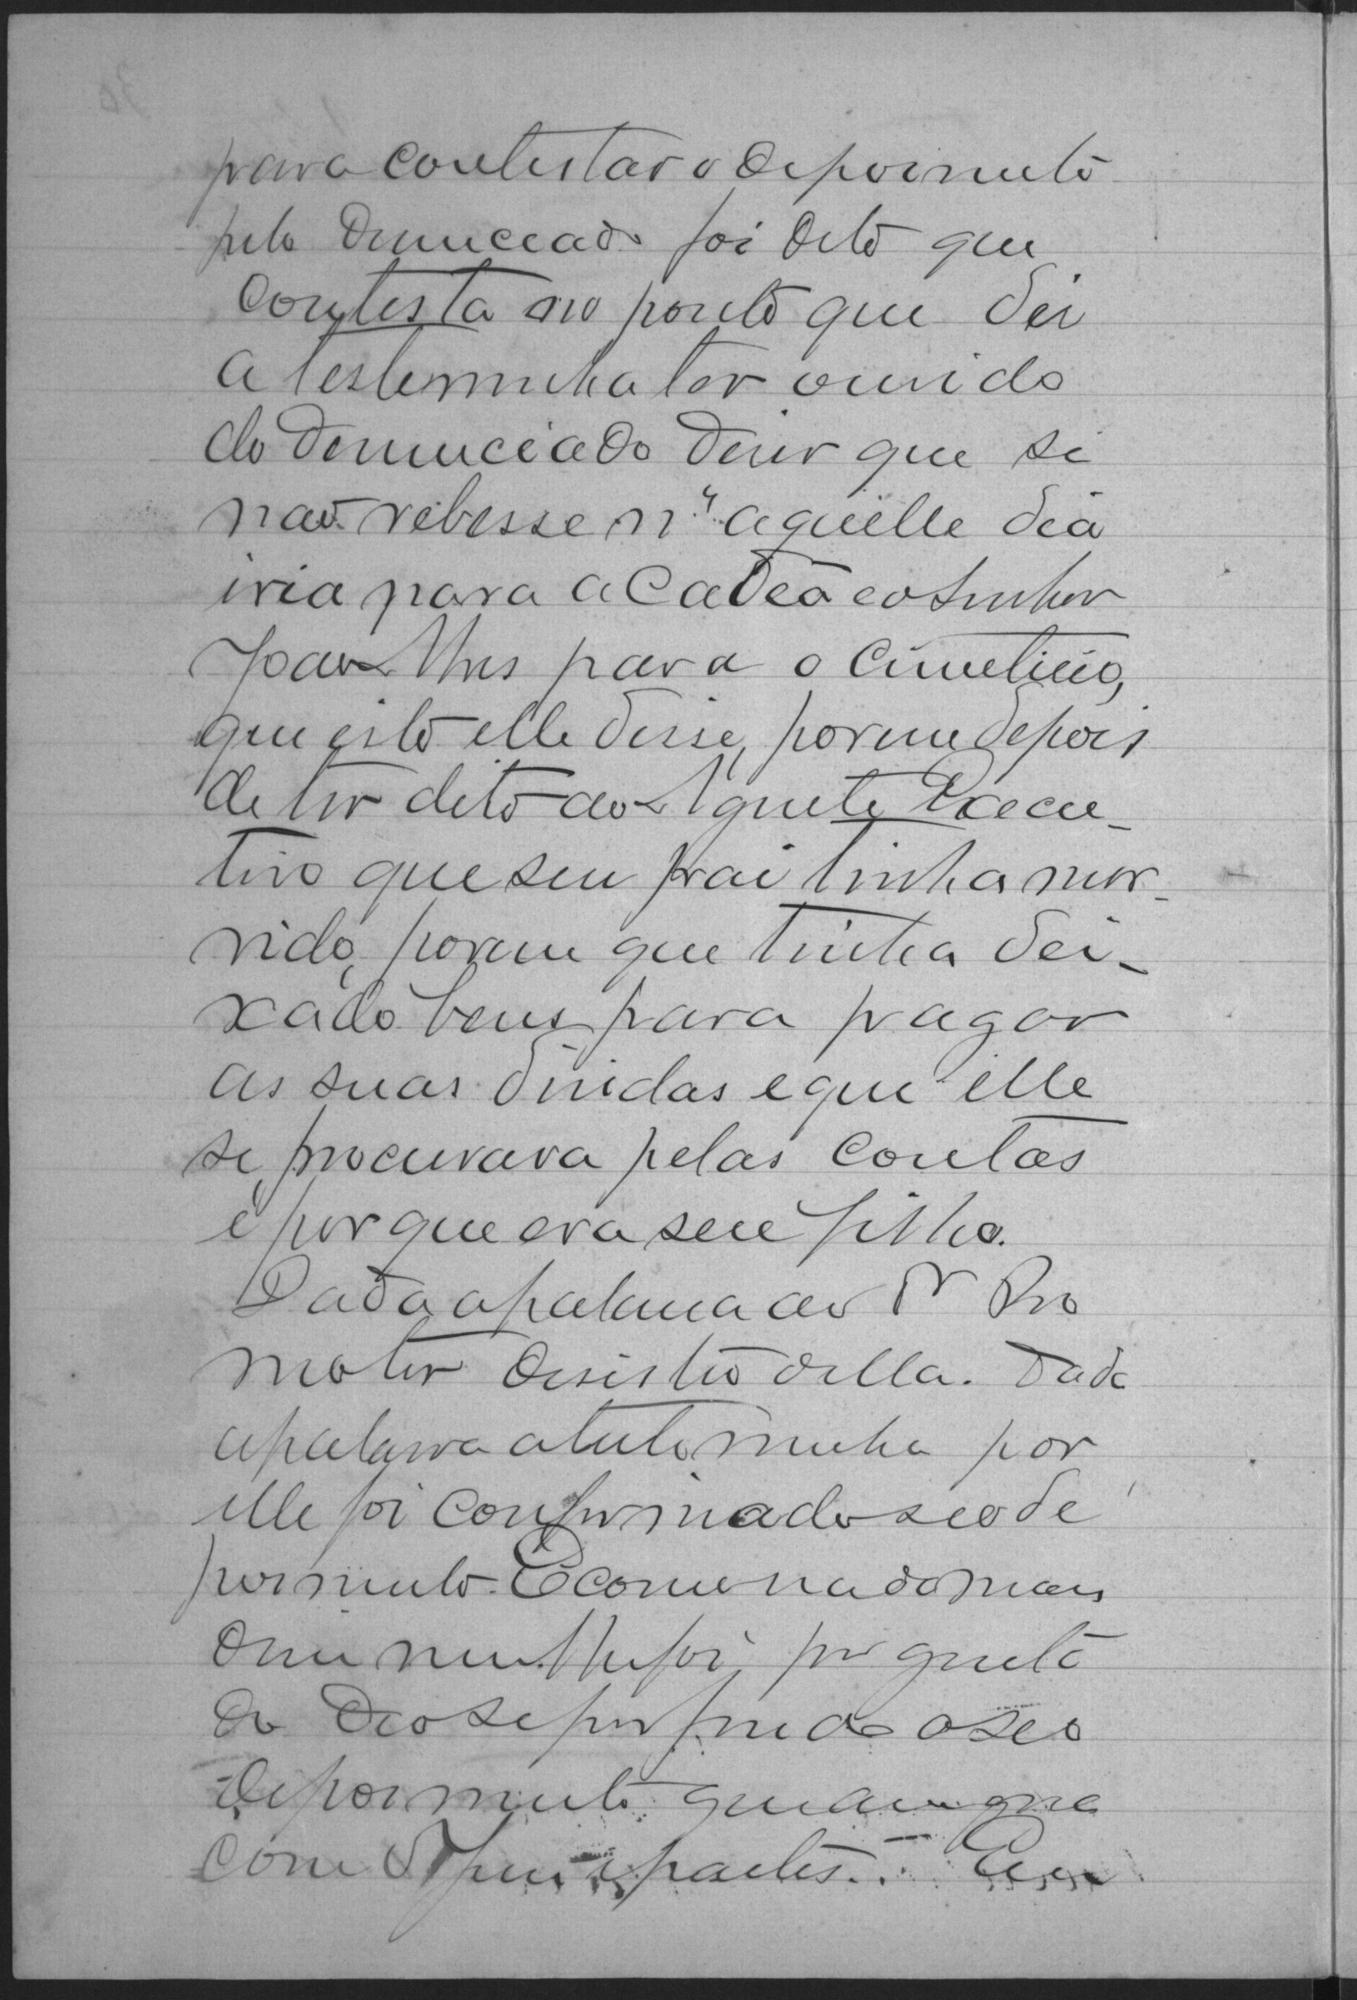 para contestar o depoimento
pelo denunciado foi dito que
contesta no ponto que dei
a testemunha ter ouvido
do denunciado dizer que si
não rebesse n'aquelle dia
iria para a Cadeia e o Senhor
João Alves para o cimetirio,
que isto elle disse, porem depois
de ter dito ao Agente Execu-
tivo que seu pai tinha mor-
rido, porem que tinha dei-
xado bens para pagar
as suas dividas e que elle
se procurava pelas contas
é porque era seu filho.
Dada a palavra ao Dr Pro
motor desistio della. Dada
a palavra a testemunha por
elle foi confirmado seo de
poimento. E como nada mais
disse nem lhe foi pergunta
do deo se por findo o seo
depoimento que assigna
com o Juiz e partes. Eu